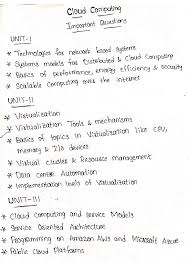 Cloud Computing
Important Questions
UNIT-I
* Technologies for network based systems
* Systems models for Distributed & Cloud Computing
* Basics of performance, energy Efficiency & security
* Scalable Computing over the internet
UNIT-II
* Virtualization
* Virtualization Tools & mechanisms
* Basics of topics in Virtualization like CPU,
memory & I/o devices
* Virtual cluster & Resource management
* Data center Automation
* Implementation levels of Virtualization
UNIT-III
* Cloud Computing and service Models
* Service Oriented Architecture
* Programming on Amazon AWS and Microsoft Azure
* Public Cloud Platforms